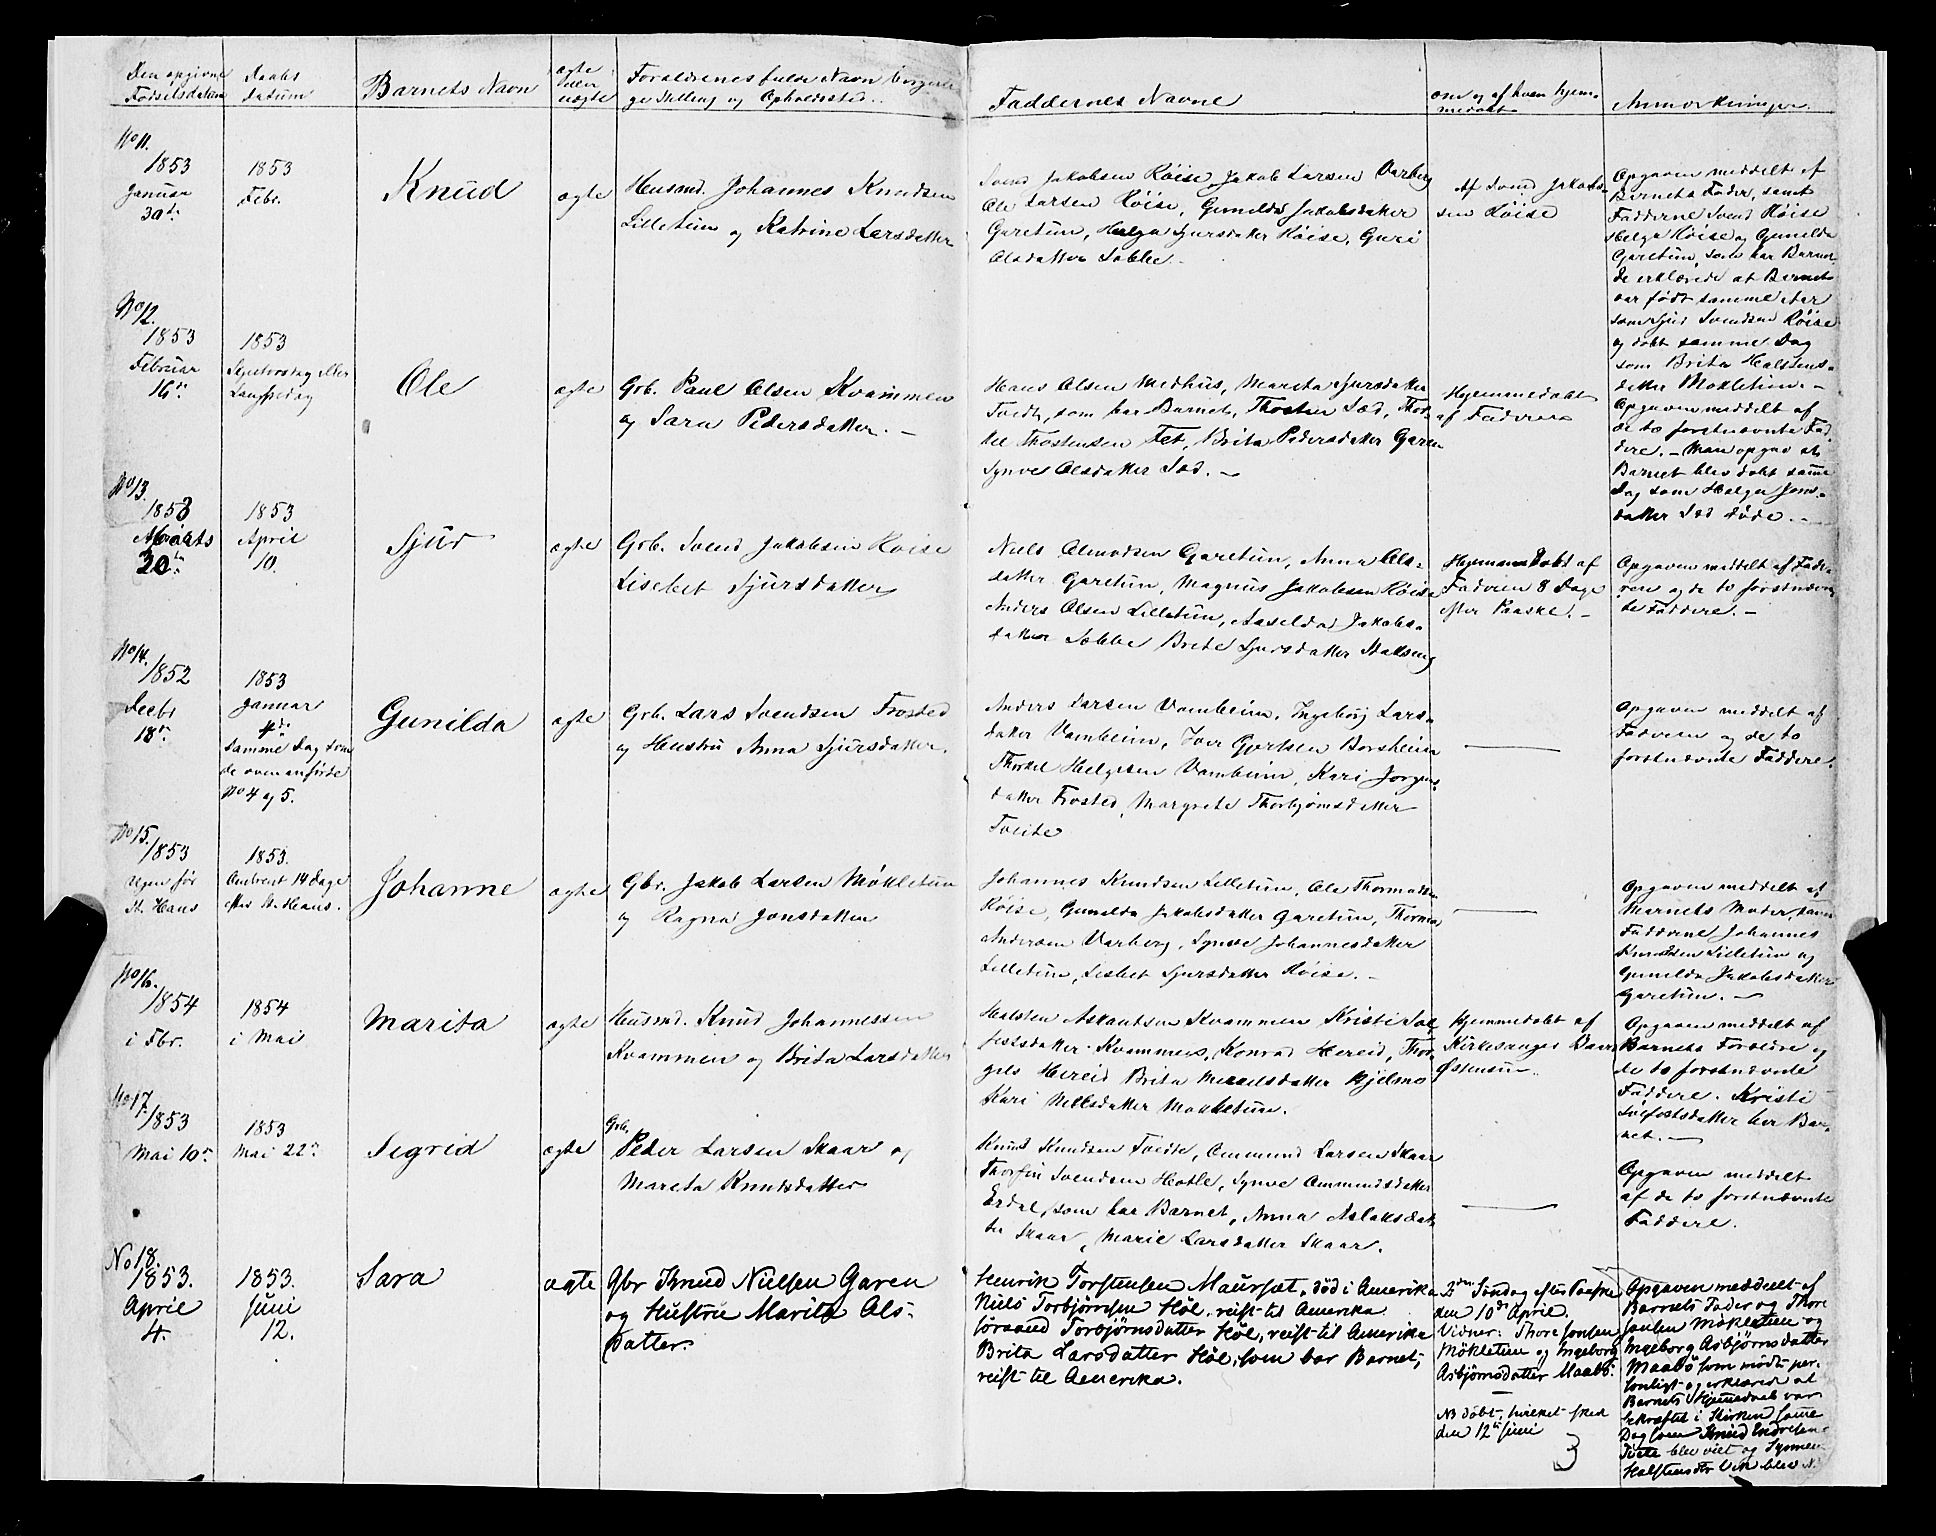 Den opgivne
Fødselsdatum
Daabs
datum
Barnets Navn
ægte
eller
uægte
Forældrenes fulde Navn borgerli-
ge Stilling og Opholdssted.
Faddernes Navne
om og af hvem hjem-
medøbt
Anmærkninger.
No 11.
1853
Januar
30te
1853
Febr.
Knud
ægte
Husmd. Johannes Knudsen
Lilletun og Katrine Larsdatter
Svend Jakobsen Röise, Jakob Larsen Varberg
Ole Larsen Röise, Gunilda Jakobsdatter
Garetun, Helga Sjursdatter Röise, Guri
Olsdatter Sæbbe.
Af Svend Jakob-
sen Röise
Opgaven meddelt af
Barnets Fader, samt
Fadderne Svend Röise
Helga Röise og Gunilda
Garetun, som bar Barnet
De erklærede at Barnet
var født samme Aar
som Sjur Svendsen Röise
og døbt samme Dag
som Brita Halstens-
datter Mökletun.
No 12.
1853
Februar
16de
1853
Skjærtorsdag eller
Langfredag
Ole
ægte
Grb. Paul Olsen Kvammen
og Sara Pedersdatter.
Hans Olsen Medhus, Marita Sjursdatter
Tveit, som bar Barnet, Thosten Sæd, Thor-
kel Thostensen Tet, Brita Pedersdatter Garen
Synve Olsdatter Sæd.
Hjemmedøbt
af Faderen
Opgaven meddelt af
de to førstnævnte Fad-
dere. - Man opgav at
Barnet blev døbt samme
Dag som Helga Jons-
datter Sæd døde.
No 13.
1853
Marts
20de
1853
April
10.
Sjur
ægte
Grb. Svend Jakobsen Röise
Lisebet Sjursdatter
Niels Amundsen Garetun, Anna Ols-
datter Garetun, Magnus Jakobsen Röise
Anders Olsen Lilletun, Aaselda Jakobs-
datter Sæbbe Brite Sjursdatter
Hjemmedøbt af
Faderen 8 Dage
efter Paaske.
Opgaven meddelt af Fade-
ren og de to førstnævn-
te Faddere.
No 14.
1852
Decbr
18de
1853
Januar
Samme Dag som
de ovenanførte
No 4 og 5.
Gunilda
ægte
Grb. Lars Svendsen Trosted
og Hustru Anna Sjursdatter.
Anders Larsen Vambeim, Ingebörg Lars-
datter Vambeim, Iver Gjertsen Borsheim
Thorkel Helgesen Vambeim, Kari Jorgens-
datter Trosted, Margrete Thorbjörnsdatter
Tveite
Opgaven meddelt af
Faderen og de to
førstnævnte Faddere.
No 15.
1853
Ugen før
St. Hans
1853.
Omtrent 14 Dage
efter St. Hans.
Johanne
ægte
Gbr. Jakob Larsen Mökletun
og Ragna Jonsdatter
Johannes Knudsen Lilletun, Ole Thormodsen
Röise, Gunilda Jakobsdatter Garetun, Thormod
Andersen Varberg, Synve Johannesdatter
Lilletun, Lisbet Sjursdatter Röise.
Opgaven meddelt af
Barnets Moder, samt
Fadderne Johannes
Knudsen Lilletun og
Gunilda Jakobsdatter
Garetun.
No 16.
1854
i Fbr.
1854
i Mai
Marita
ægte
Husmd. Knud Johannessen
Kvammen og Brita Larsdatter
Halsten Askautsen Kvammen Kristi Sol-
festsdatter Kvammen, Konrad Hereid, Thor-
gils Hereid Brita Mikkelsdatter Hjelmo
Kari Nielsdatter Mökletun.
Hjemmedøbt af
Kirkesanger Lars
Østensen
Opgaven meddelt af
Barnets Forældre og
de to førstnævnte
Faddere. Kristi
Solfestsdatter bar Bar-
net.
No 17.
1853
Mai 10de
1853
Mai 22de
Sigrid
ægte
Grb.
Peder Larsen Skaar og
Marita Knutsdatter
Knud Knudsen Tveite, Ommund Larsen Skaar
Thorfin Svendsen Hotle, Synve Ommundsdatter
Erdal, som bar Barnet, Anna Aslaksdat-
ter Skaar, Marie Larsdatter Skaar.
Opgaven meddelt
af de to førstnævnte
Faddere.
No 18.
1853.
April
4.
1853.
Juni
12.
Sara
ægte
Gbr Knud Nielsen Garen
og Hustru Marita Ols-
datter.
Henrik Torstensen Maursæt, død i Amerika
Niels Torbjørnsen Höl, reist til Amerika
Jørand Torbjørnsdatter Höl, reist til Amerika
Brita Larsdatter Höl, som bar Barnet,
reist til Amerika.
2den Søndag efter Paaske
den 10de April.
Vidner: Thore Jonsen
Mökletun og Ingeborg
Asbjørnsdatter Maabö.
NB døbt, hvilket skede
den 12te Juni
Opgaven meddelt af
Barnets Fader og Thore
Jonsen Mökletun og
Ingeborg Asbjørnsdatter
Maabö som mødte per-
sonligt og erklærede at
Barnets Hjemmedaab var
bekræftet i Kirken samme
Dag som Knud Endresen
Tveite blev viet og Synneva
Halstensdtr Vik blev